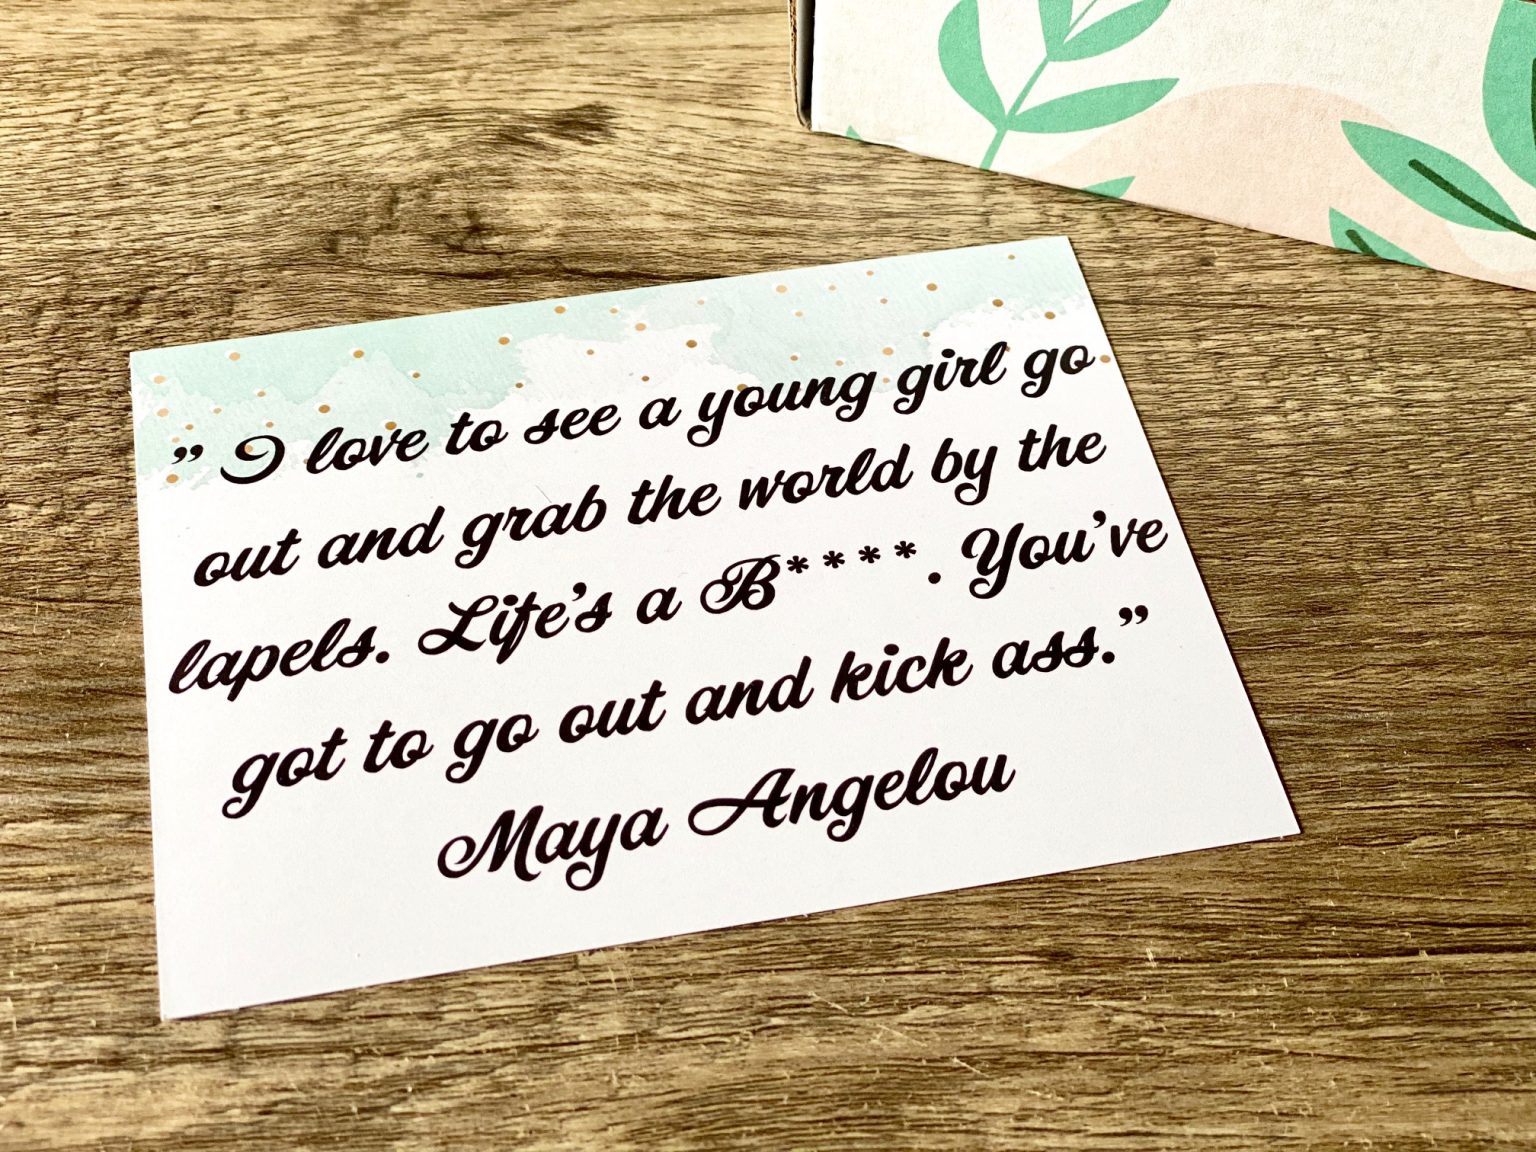 ” I love to see a young girl go
out and grab the world by the
lapels. Life’s a B****. You’ve
got to go out and kick ass.”
Maya Angelou